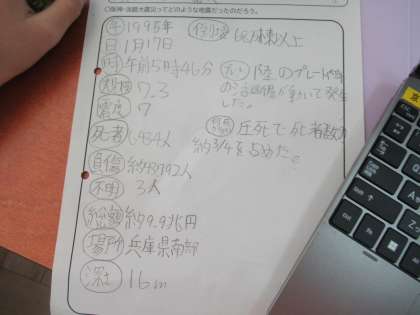 阪神・淡路大震災ってどのような地震だったのだろう。
年 1995年
日 1月17日
時 午前5時46分
規模 7.3
震度 7
死者 6,434人
負傷 約43792人
不明 3人
総額 約9.9兆円
場所 兵庫県南部
深さ 16m
倒壊 棟以上
陸のプレート
の活断層が動いて発生
した。
圧死で死者数の
約3/4を占めた。